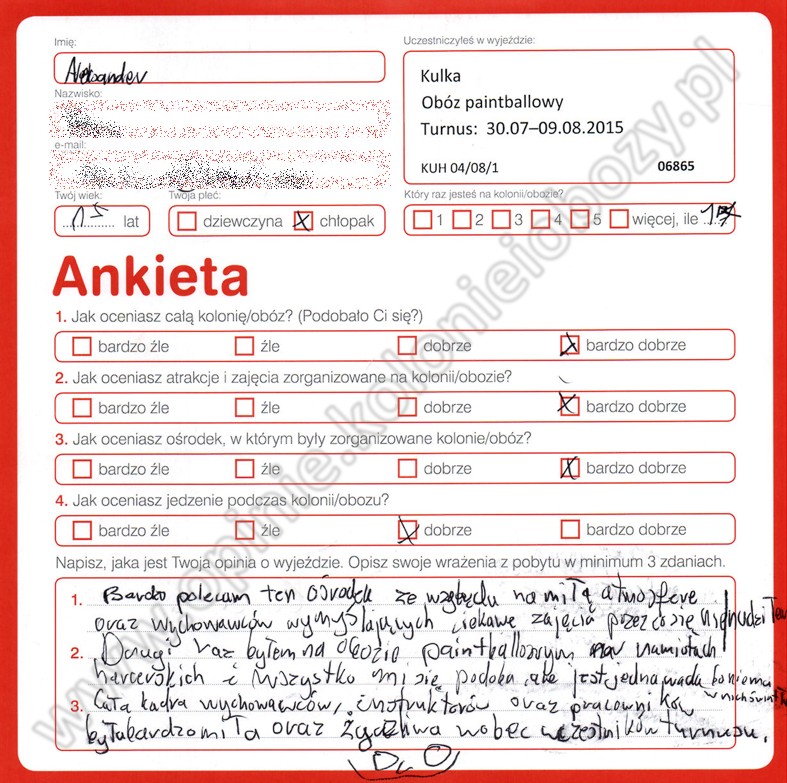 Imię:
Aleksander
Uczestniczyłeś w wyjeździe:
Kulka
Obóz paintballowy
Turnus: 30.07–09.08.2015
KUH 04/08/1 06865
Nazwisko:
e-mail:
Twój wiek:
15 lat
Twoja płeć:
dziewczyna X chłopak
Który raz jesteś na kolonii/obozie?
1 2 3 4 5 więcej, ile
Ankieta
1. Jak oceniasz całą kolonię/obóz? (Podobało Ci się?)
bardzo źle źle dobrze X bardzo dobrze
2. Jak oceniasz atrakcje i zajęcia zorganizowane na kolonii/obozie?
bardzo źle źle dobrze X bardzo dobrze
3. Jak oceniasz ośrodek, w którym były zorganizowane kolonie/obóz?
bardzo źle źle dobrze X bardzo dobrze
4. Jak oceniasz jedzenie podczas kolonii/obozu?
bardzo źle źle X dobrze bardzo dobrze
Napisz, jaka jest Twoja opinia o wyjeździe. Opisz swoje wrażenia z pobytu w minimum 3 zdaniach.
1. Bardo polecam ten ośrodek ze względu na miłą atmosfere
oraz wychowawców wymyślających ciekawe zajęcia przez co się nie nudziłem
2. Drugi raz byłem na obozie paintballowym w namiotach
harcerskich i wszystko mi się podoba ale jest jedna wada bo niema
w nich światła
3. Cała kadra wychowawców, instruktorów oraz pracowników
była bardzo miła oraz życzliwa wobec uczestników turnusu.
www.opinie.kolonieiobozy.pl